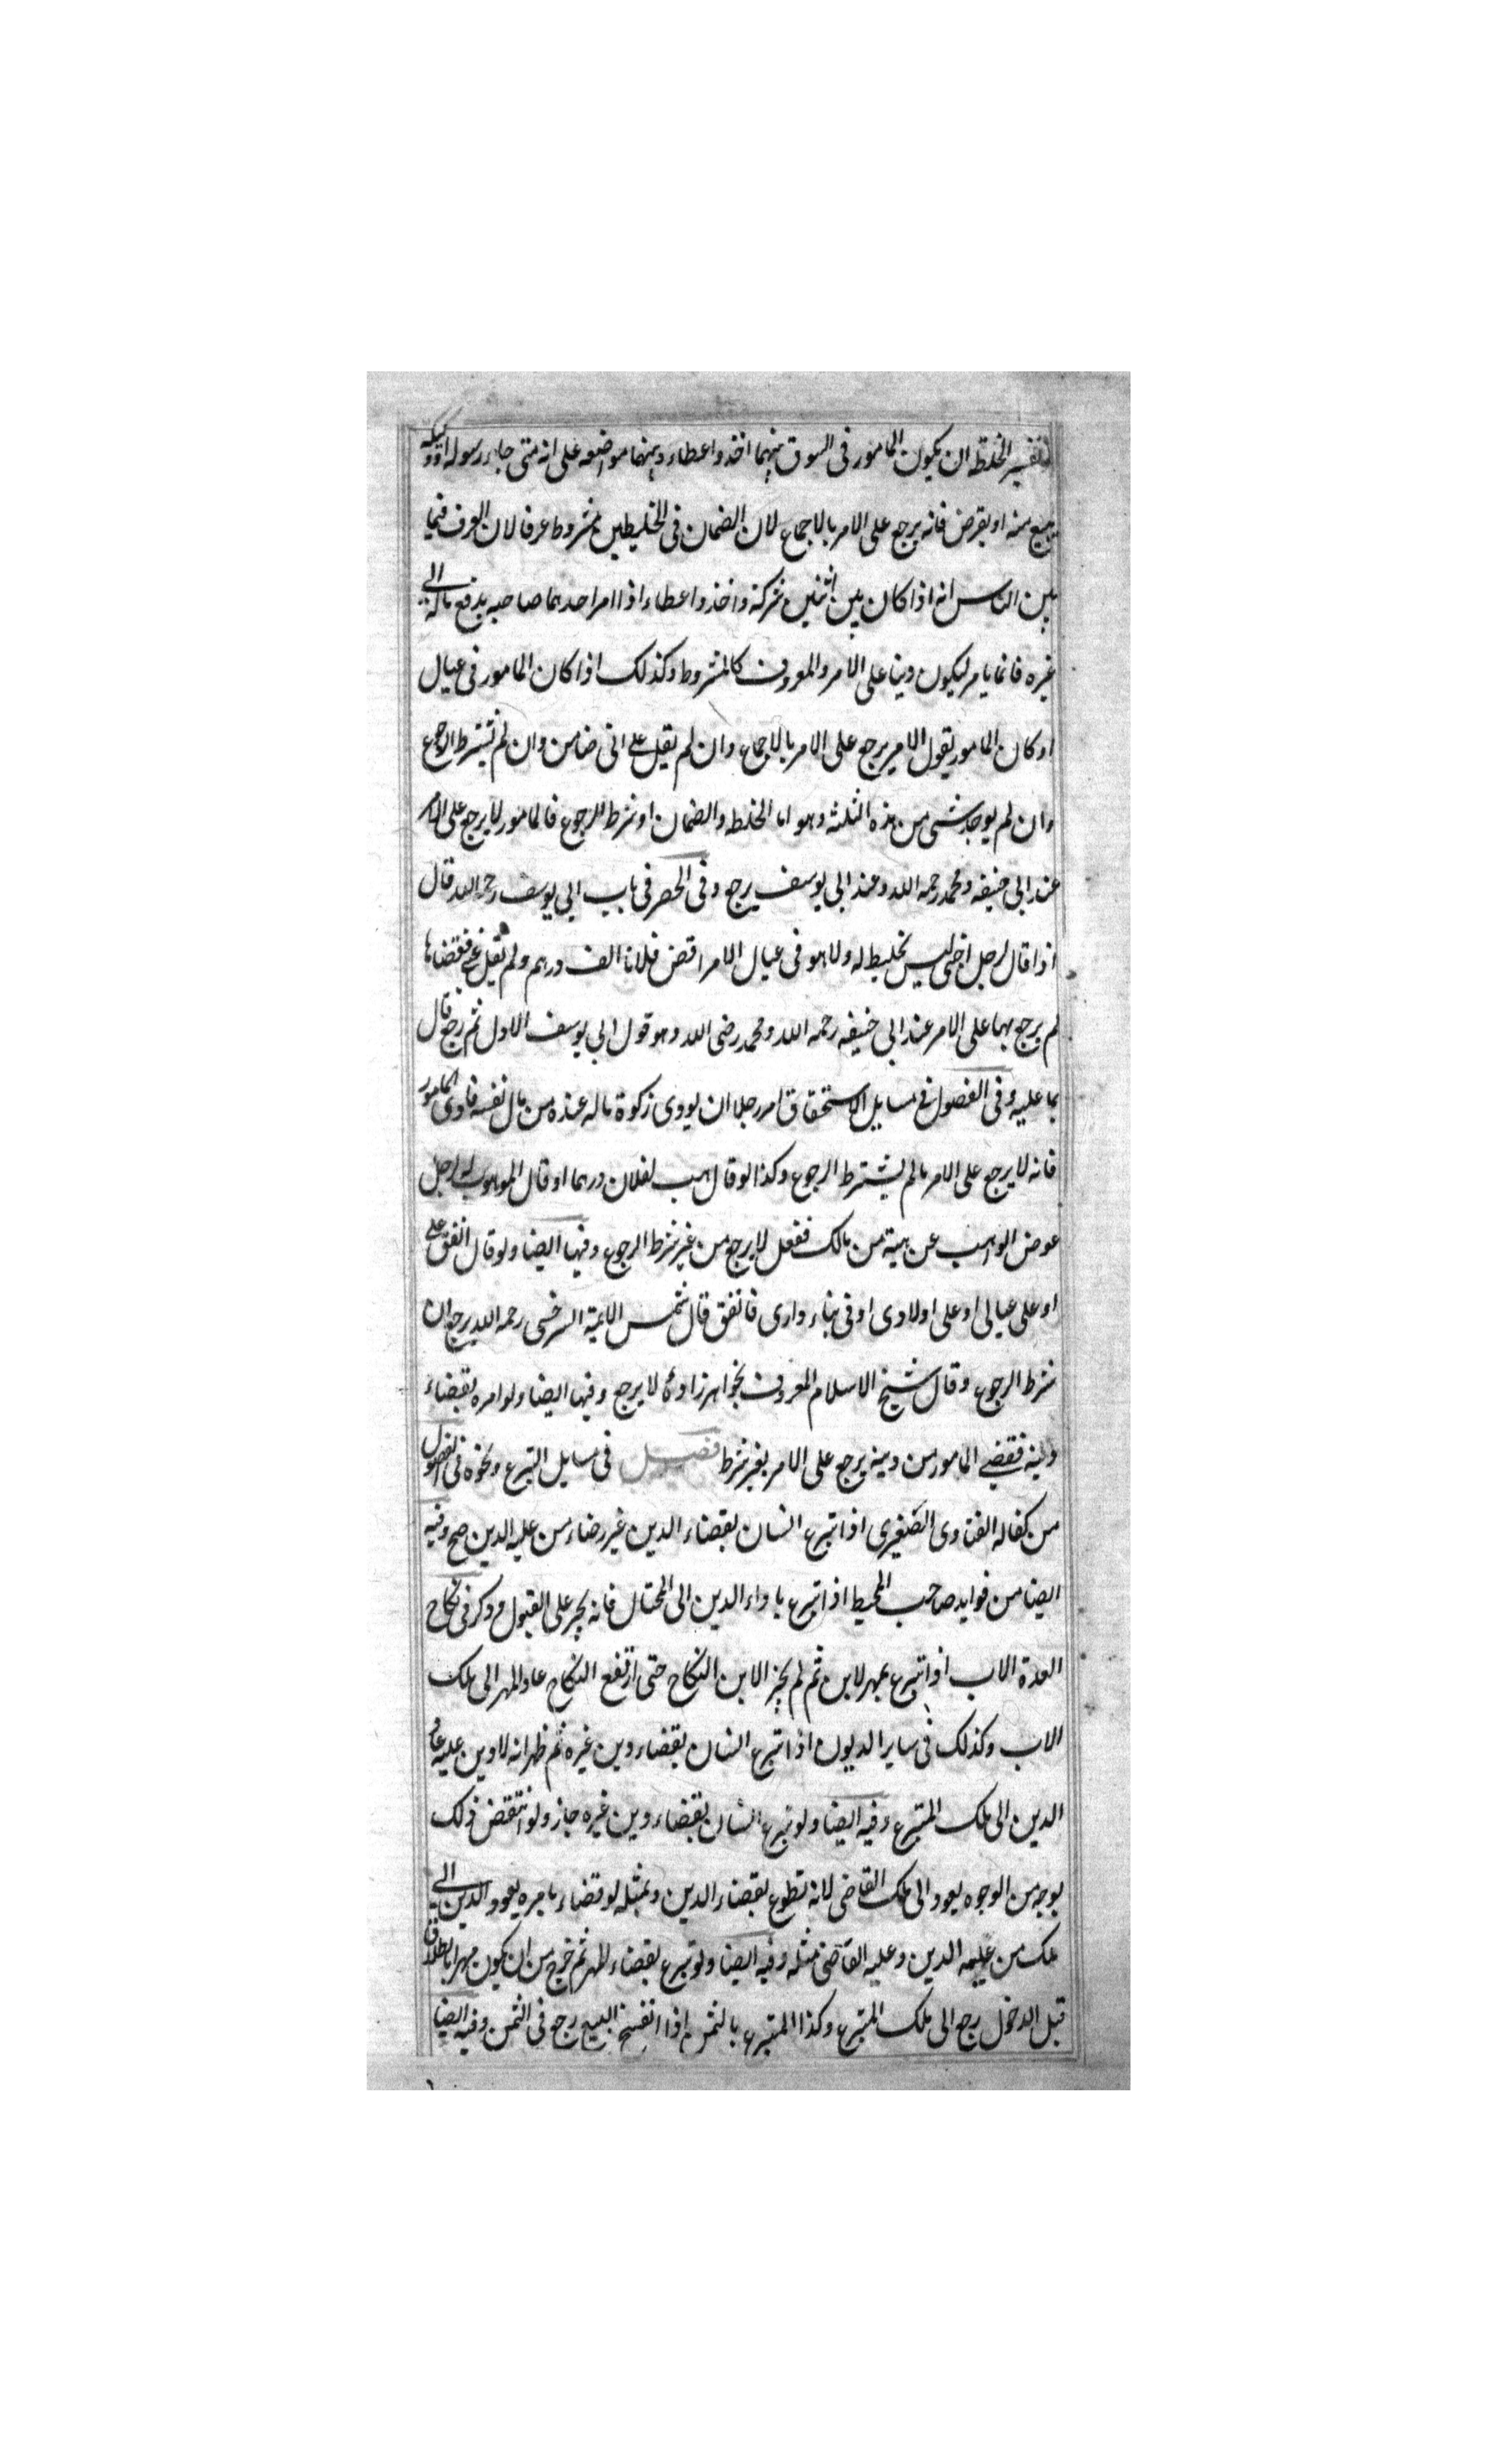 تفسير الخلط ان يكون المامور فى السوق بينهما اخذ واعطاء وبينهما مواضعه على انه متى جاء رسوله او وكيله
يبيع منه او يقرض فانه يرجع على الامر بالاجماع لان الضمان فى الخليطين مشروط عرفا لان العرف فيما
بين الناس انه اذا كان بين اثنين شركة واخذ واعطاء اذا امر احدهما صاحبه بدفع ماله الى
غيره فانما يامر ليكون دينا على الامر والمعروف كالمشروط وكذلك اذا كان المامور فى عيال
او كان المامور يقول الامر يرجع على الامر بالاجماع وان لم يقل على انى ضامن وان لم يشترط الرجوع
وان لم يوجد شى من هذه الثلثة وهو اما الخلطه والضمان او شرط الرجوع فالمامور لا يرجع على الامر
عند ابى حنيفه ومحمد رحمه الله وعند ابى يوسف يرجع وفى الحصر فى باب ابى يوسف رحمه الله قال
اذا قال لرجل اجنبى ليس بخليط له ولا هو فى عيال الامر اقض فلانا الف درهم ولم يقل عنى فقضاها
لم يرجع بهما على الامر عند ابى حنيفه رحمه الله ومحمد رضى الله وهو قول ابى يوسف الاول ثم رجع قال
بما عليه وفى الفصول فى مسايل الاستحقاق امر رجلا ان يودى زكوة ماله عنده من مال نفسه فادى المامور
فانه لا يرجع على الامر مالم يشترط الرجوع وكذا لو قال هب لفلان درهما او قال الموهوب له لرجل
عوض الواهب عن هبته من مالك ففعل لا يرجع من غير شرط الرجوع وفيها ايضا ولو قال انفق على
او على عيالى او على اولادى او فى بناء دارى فانفق قال شمس الايمة السرخسى رحمه الله يرجع ان
شرط الرجوع وقال شيخ الاسلام المعروف بخواهرزاده لا يرجع وفيها ايضا ولو امره بقضاء
دينه فقضى المامور من دينه يرجع على الامر بغير شرط فصل فى مسايل التبرع ونحوه فى الفصول
من كفاله الفتاوى الصغيرى اذا تبرع انسان بقضاء الدين غير رضاء من عليه الدين صح وفيه
ايضا من فوايد صاحب المحيط اذا تبرع باداء الدين الى المحتال فانه يجبر على القبول وذكر فى نكاح
العدة الاب اذا تبرع بمهر لابن ثم لم يجز الابن النكاح حتى ارتفع النكاح عاد المهر الى ملك
الاب وكذلك فى ساير الديون اذا تبرع انسان بقضاء دين غيره ثم ظهر انه لا دين عليه عاد
الدين الى ملك المتبرع وفيه ايضا ولو تبرع انسان بقضاء دين غيره جاز ولو انتقض ذلك
بوجه من الوجوه يعود الى ملك القاضى لانه تطوع بقضاء الدين وبمثله لو قضاء بامره يعود الدين الى
ملك من عليه الدين وعليه القاضى مثله وفيه ايضا ولو تبرع بقضاء المهر ثم خرج من ان يكون مهرا بالطلاق
قبل الدخول رجع الى ملك المتبرع وكذا المتبرع بالثمن اذا انفسخ البيع رجع فى الثمن وفيه ايضا